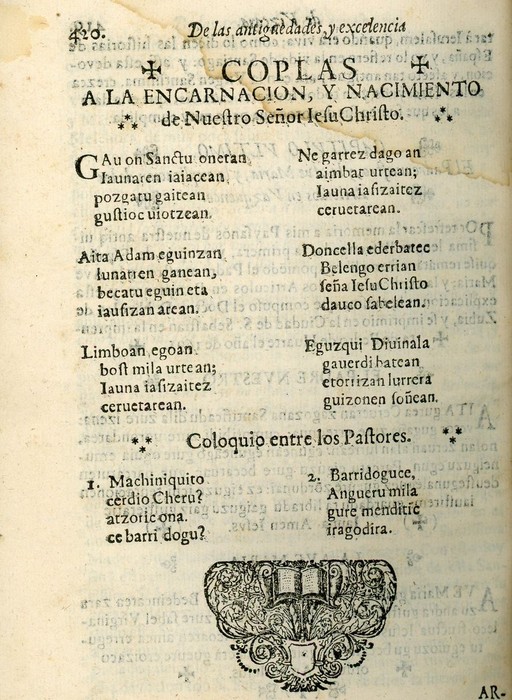 420. De las antiguedades, y excelencia
COPLAS
A LA ENCARNACION, Y NACIMIENTO
de Nuestro Señor IesuChristo.
GAu on Sanctu onetan
Iaunaren iaiacean
pozgatu gaitean
gustioc uiotzean.
Aita Adam eguinzan
lunatien ganean,
becatu eguin eta
iausizan atean.
Limboan egoan
bost mila urtean;
Iauna iasizaitez
ceruetarean.
Ne garrez dago an
aimbat urtean;
Iauna iasizaitez
ceruetarean.
Doncella ederbatec
Belengo errian
seña IesuChristo
dauco sabelean.
Eguzqui Diuinala
gauerdi batean
etorri izan lurrera
guizonen soñean.
Coloquio entre los Pastores.
1. Machiniquito
cerdio Cheru?
atzoric ona.
ce barri dogu?
2. Barridoguce,
Angueru mila
gure menditic
iragodira.
AR-